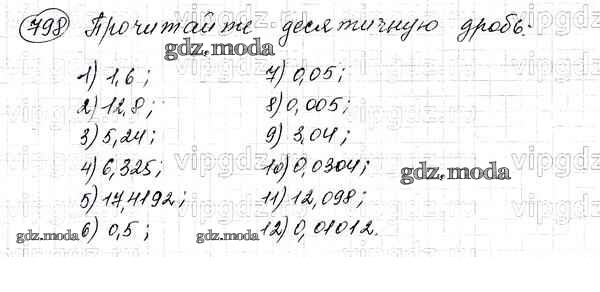 798 Прочитайте десятичную дробь:
gdz.moda
1) 1,6; 7) 0,05;
2) 12,8; 8) 0,005;
3) 5,24; 9) 3,04;
4) 6,325; 10) 0,0304;
gdz.moda
5) 17,4192; 11) 12,098;
6) 0,5; 12) 0,01012.
gdz.moda gdz.moda